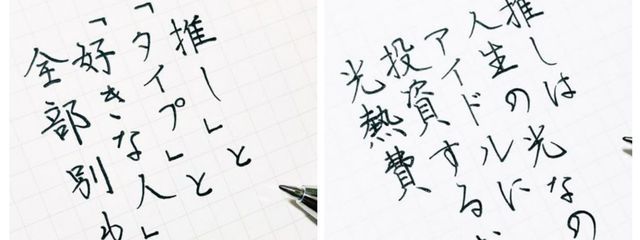 推し」と
「タイプ」と
「好きな人」
全部別
推しは光なの
人生の
アイドルに
投資する
光熱費